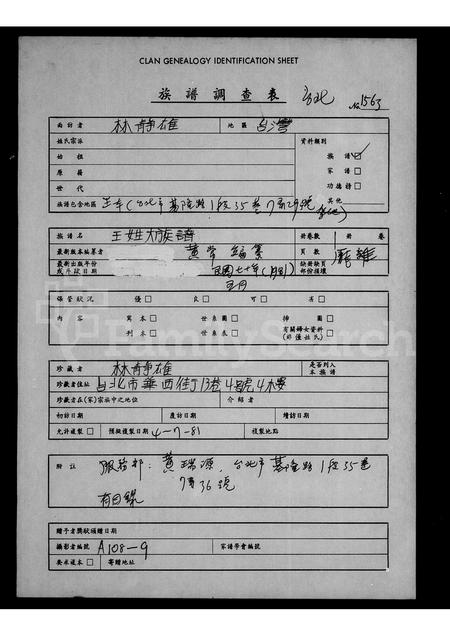 CLAN GENEALOGY IDENTIFICATION SHEET
族譜調查表 台北 No 1563
面訪者 林靜雄 地區 台灣
姓氏宗派 資料類別
始祖 族譜
原籍 家譜
世代 功德榜
族譜包含地區 台北市基隆路1段35巷7弄29號 其他
譜名 王姓大族譜 冊卷數 1 冊 卷
最新版本編纂者 黃 編纂 頁數
最新出版年份或手錄日期 民國七十年(1981) 缺冊缺頁部份損壞
保管狀況 優 良 可 劣
內容 寫本 世系圖 排圖
刊本 世系表 有關婦女資料(非僅姓氏)
FamilySearch
珍藏者 林靜雄 是否列入本族譜
珍藏者住址 台北市華西街13巷4號4樓
珍藏者在(家)宗族中之地位 介紹者
初訪日期 度訪日期 續訪日期
允許複製 預擬複製日期 4-7-81 複製地點
附註 服務部:黃瑞源,台北市基隆路1段35巷
7弄36號
有目錄
贈予者獎狀頒贈日期
攝影者編號 A108-9 家譜學會編號
要求複本 寄贈地址